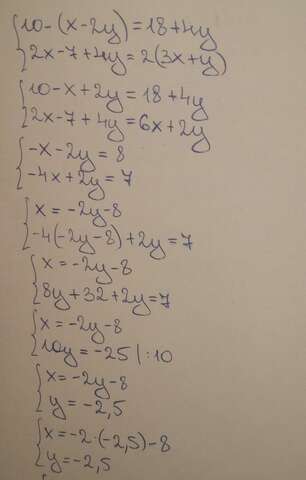 10-(x-2y)=18+4y
2x-7+4y=2(3x+y)
10-x+2y=18+4y
2x-7+4y=6x+2y
-x-2y=8
-4x+2y=7
x=-2y-8
-4(-2y-8)+2y=7
x=-2y-8
8y+32+2y=7
x=-2y-8
10y=-25|:10
x=-2y-8
y=-2,5
x=-2·(-2,5)-8
y=-2,5